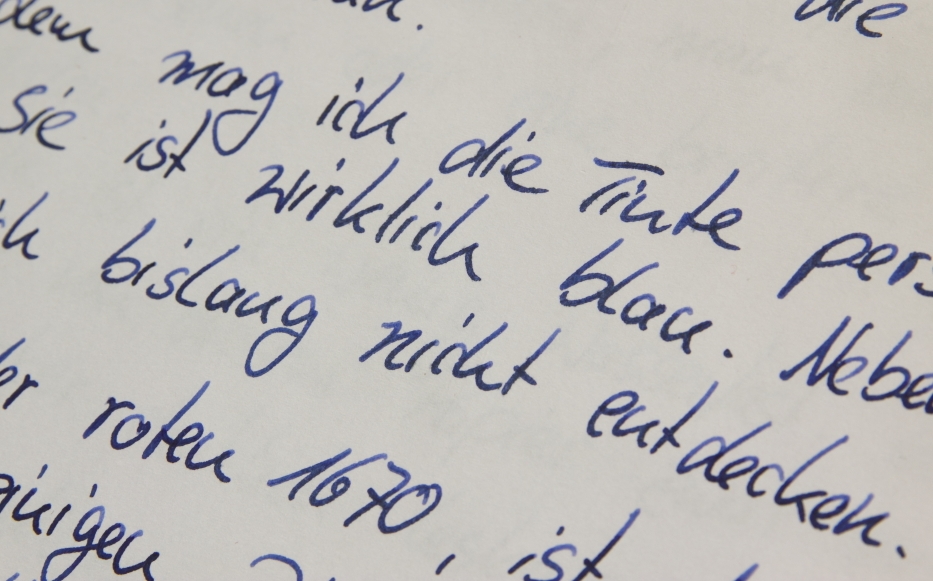 die
dem mag ich die Tinte pers
sie ist wirklich blau. Nebe
ch bislang nicht entdecken.
er roten 1670, ist
einigen